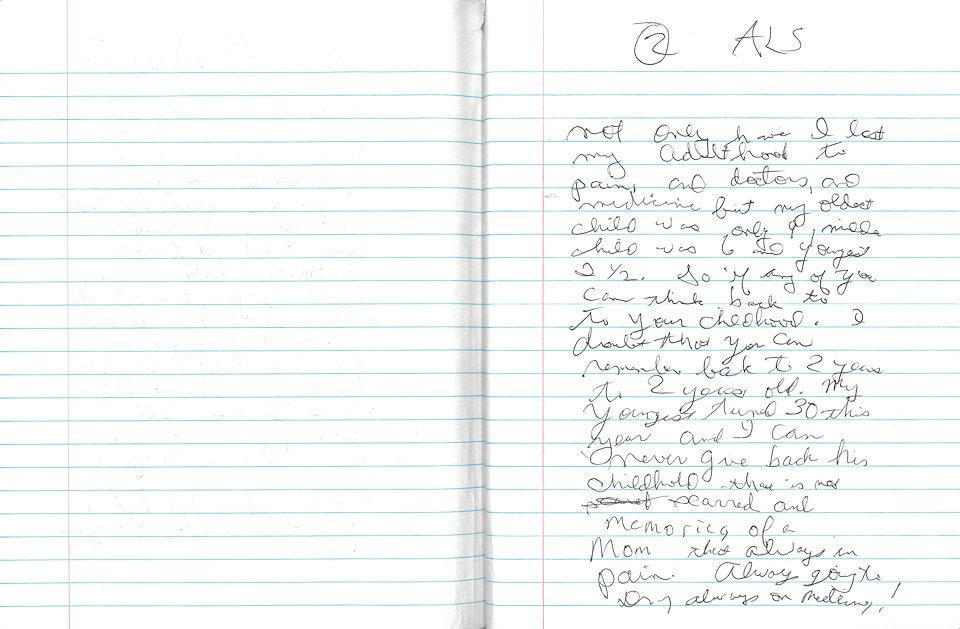 ② ALS
not only have I lost
my adulthood to
pain, and doctors, and
medicine but my oldest
child was only 9, middle
child was 6 and youngest
2 1/2. So if any of you
can think back to
to your childhood. I
doubt that you can
remember back to 2 years
to 2 years old. My
youngest turned 30 this
year and I can
never give back his
childhold that is not
scarred and
memories of a
Mom that always in
pain. Always going to
Dr, always on